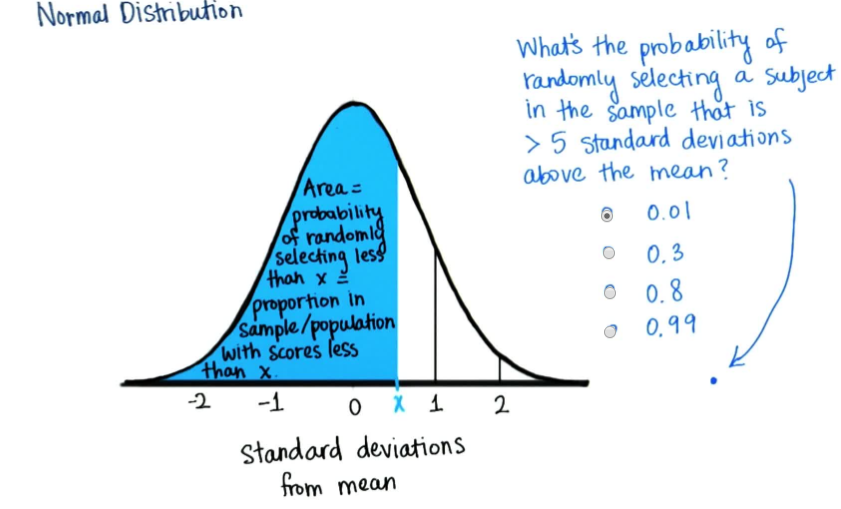 Normal Distribution
What's the probability of
randomly selecting a subject
in the sample that is
> 5 standard deviations
above the mean?
0.01
0.3
0.8
0.99
Area =
probability
of randomly
selecting less
than x =
proportion in
sample/population
with scores less
than x.
-2 -1 0 x 1 2
Standard deviations
from mean